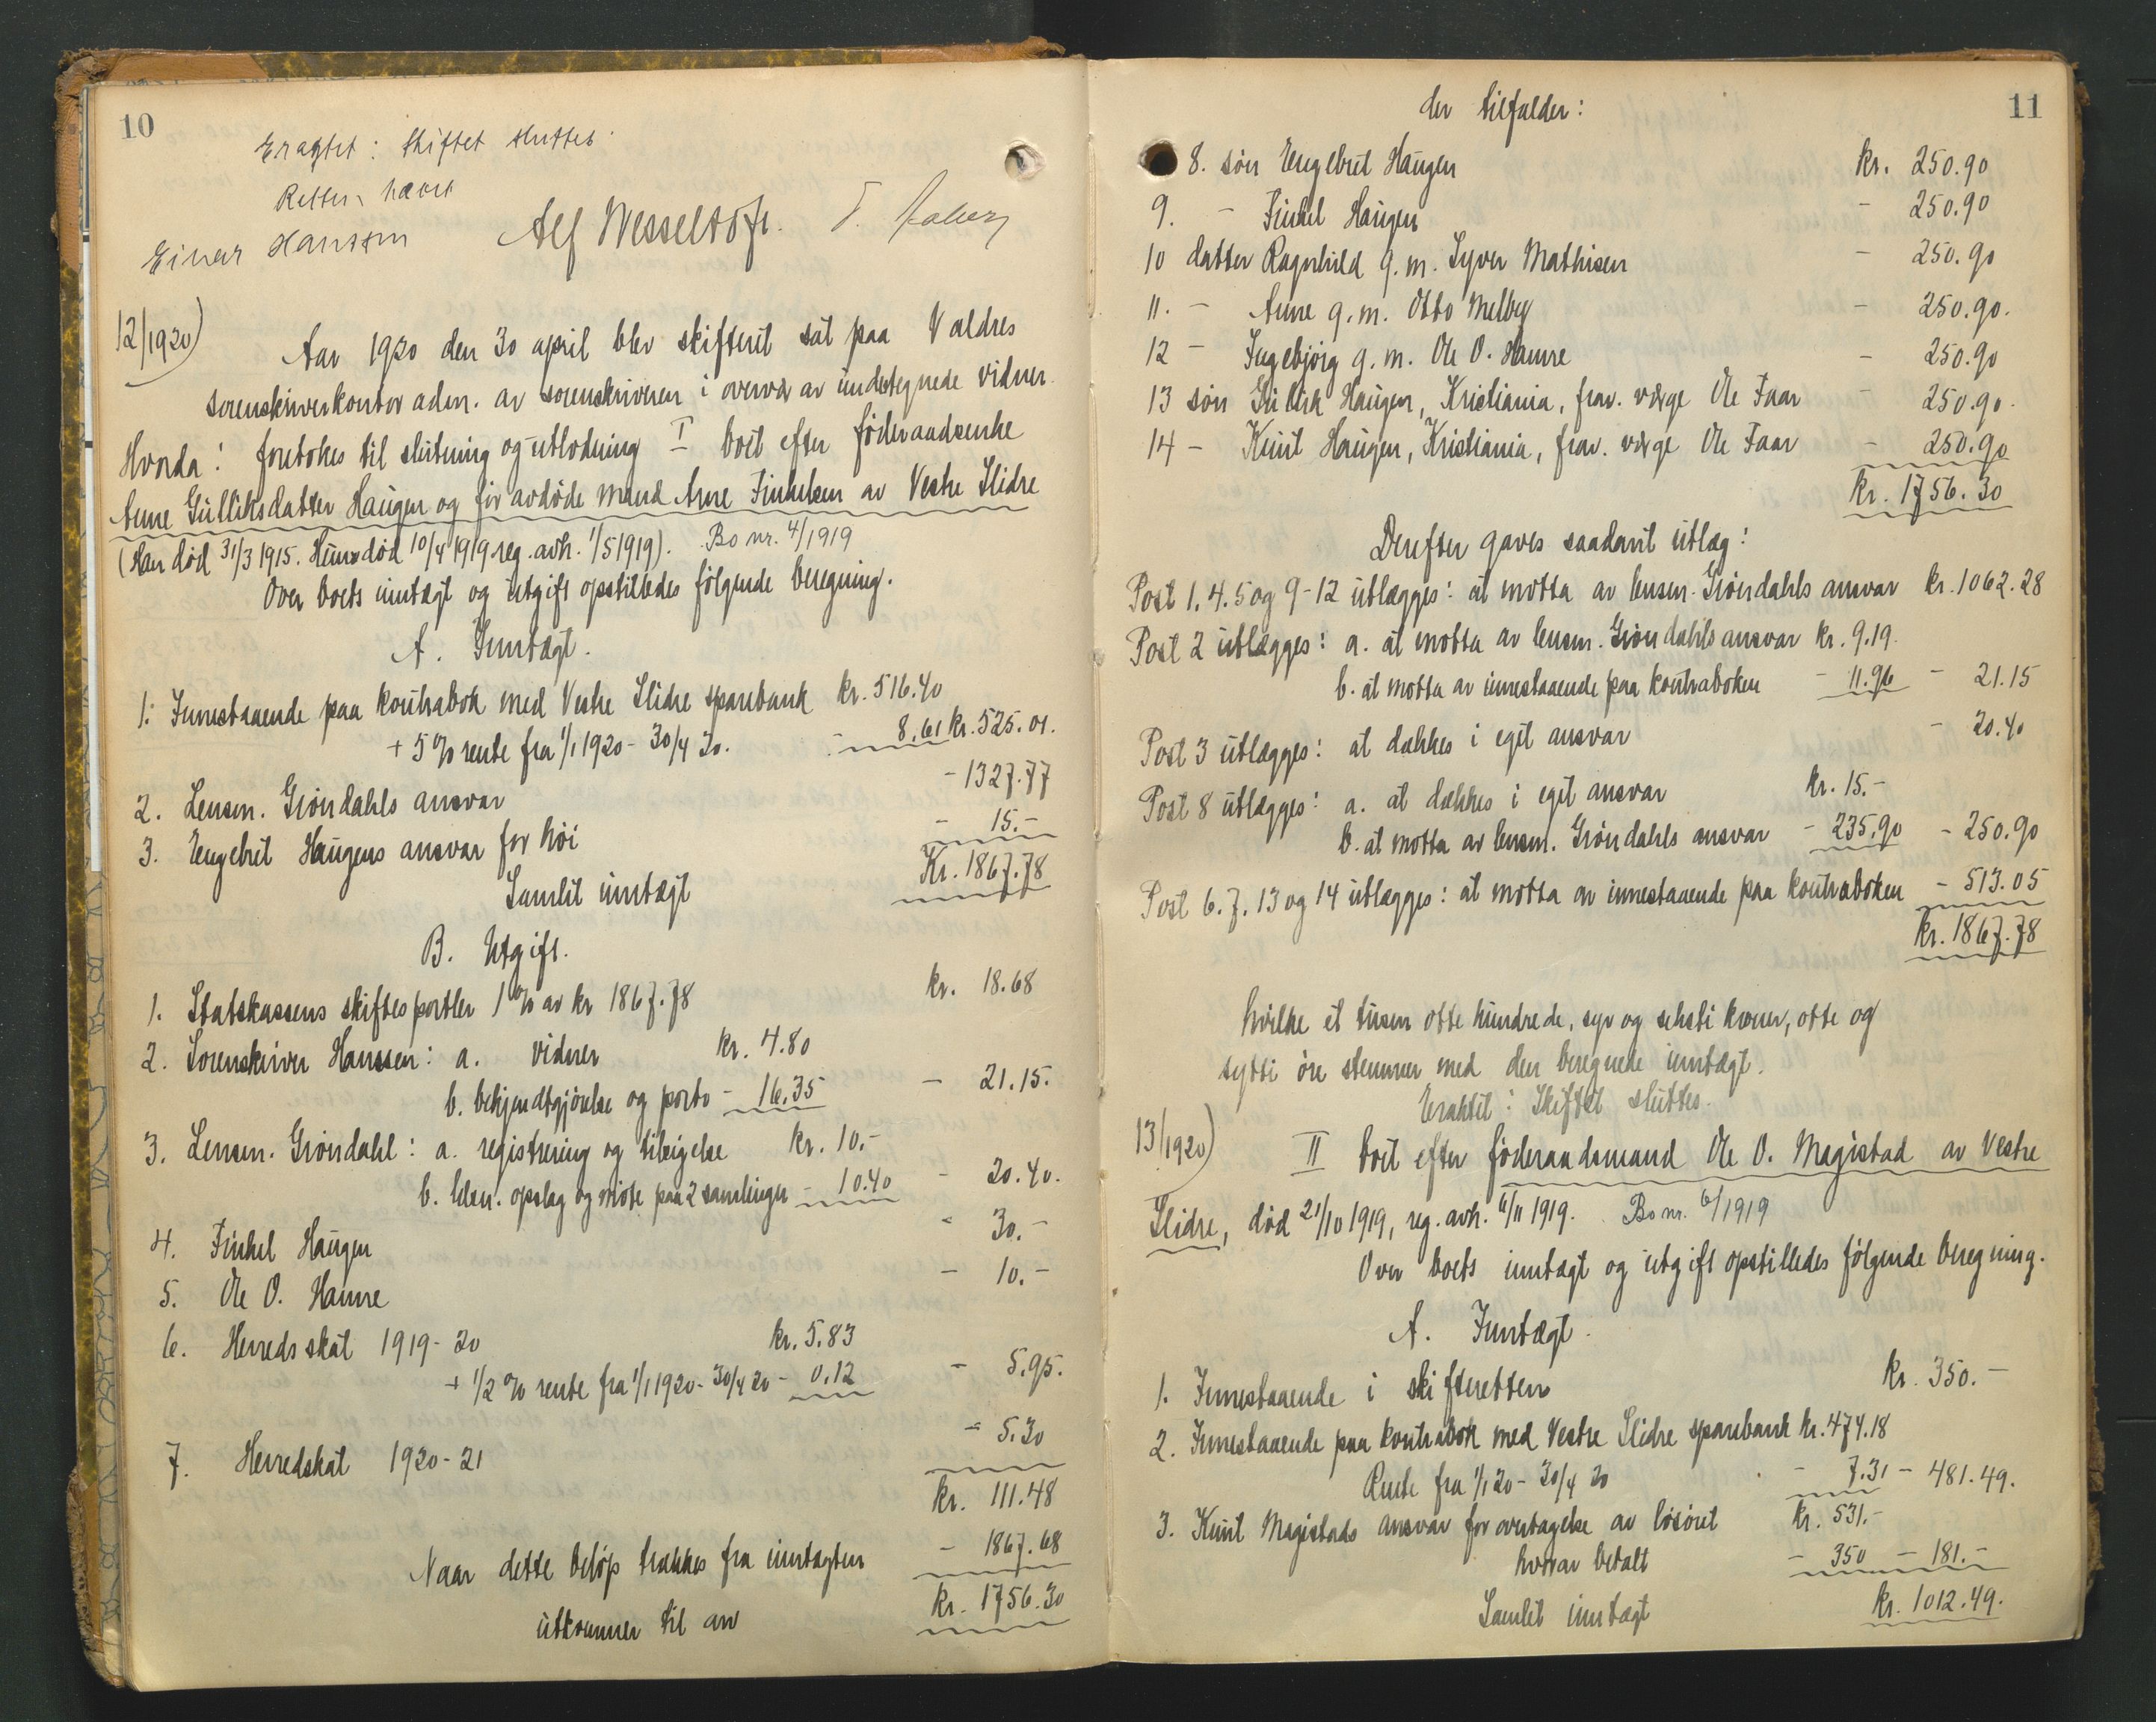 10
Eragtet: Skiftet sluttet.
Retten hævet
Einar Hanssen Alf Wesseltoft.
12/1920)
Aar 1920 den 30 april blev skifteret sat paa Valdres
sorenskriverkontor adm. av sorenskriveren i overvær av undertegnede vidner.
Hvorda: foretokes til slutning og utlodning I boet efter føderaadsenke
Anne Gulliksdatter Haugen og før avdøde mand Arne Finkelsen av Vestre Slidre
(Han død 31/3 1915. Hun død 10/4 1919 reg. avh. 1/5 1919). Bo nr. 4/1919
Over boets inntægt og utgift opstilledes følgende beregning.
A. Inntægt.
1. Innestaaende paa kontrabok med Vestre Slidre sparebank kr. 516.40
+ 5 % rente fra 1/1 1920 - 30/4 20. - 8.61 kr. 525.01.
2. Lensm. Grøndahls ansvar - 1327.77
3. Engebret Haugens ansvar for høi - 15.-
Samlet inntægt Kr. 1867.78
B. Utgift.
1. Statskassens skiftesportler 1 % av kr 1867.78 kr. 18.68
2. Sorenskriver Hanssen: a. vidner kr. 4.80
b. bekjendtgjørelse og porto - 16.35 - 21.15.
3. Lensm. Grøndahl: a. registrering og tilsigelse kr. 10.-
b. bekn. opslag og møte paa 2 samlinger - 10.40 - 20.40.
4. Finkel Haugen - 30.-
5. Ole O. Hamre - 10.-
6. Herredsskat 1919-20 kr. 5.83
+ 1/2 % rente fra 1/1 1920 - 30/4 20 - 0.12 - 5.95.
7. Herredskat 1920-21 - 5.30
kr. 111.48
Naar dette beløp trækkes fra inntægten - 1867.68
utkommer til arv kr. 1756.30
11
der tilfalder:
8. søn Engebret Haugen kr. 250.90
9. - Finkel Haugen - 250.90
10 datter Ragnhild g.m. Syver Mathisen - 250.90
11. - Anne g.m. Otto Melby - 250.90.
12 - Ingebjørg g.m. Ole O. Hamre - 250.90
13 søn Gullik Haugen, Kristiania, frav. værge Ole Faar - 250.90.
14 - Knut Haugen, Kristiania, frav. værge Ole Faar - 250.90
kr. 1756.30
Derefter gaves saadant utlæg:
Post 1. 4. 5 og 9-12 utlægges: at motta av lensm. Grøndahls ansvar kr. 1062.28
Post 2 utlægges: a. at motta av lensm. Grøndahls ansvar kr. 9.19.
b. at motta av innestaaende paa kontraboken - 11.96 - 21.15
Post 3 utlægges: at dækkes i eget ansvar - 20.40
Post 8 utlægges: a. at dækkes i eget ansvar kr. 15.-
b. at motta av lensm. Grøndahls ansvar - 235.90 - 250.90
Post 6. 7. 13 og 14 utlægges: at motta av innestaaende paa kontraboken - 513.05
kr. 1867.78
hvilke et tusen otte hundrede, syv og seksti kroner, otte og
sytti øre stemmer med den beregnede inntægt.
Eraktet: Skiftet sluttes.
13/1920)
II boet efter føderaadsmand Ole O. Magistad av Vestre
Slidre, død 21/10 1919, reg. avh. 6/11 1919. Bo nr. 6/1919
Over boets inntægt og utgift opstilledes følgende beregning.
A. Inntægt.
1. Innestaaende i skifteretten kr. 350.-
2. Innestaaende paa kontrabok med Vestre Slidre sparebank kr. 474.18
Rente fra 1/1 20 - 30/4 20 - 7.31 - 481.49.
3. Knut Magistads ansvar for overtagelse av løsøret kr. 531.-
hvorav betalt - 350 - 181.-
Samlet inntægt kr. 1012.49.